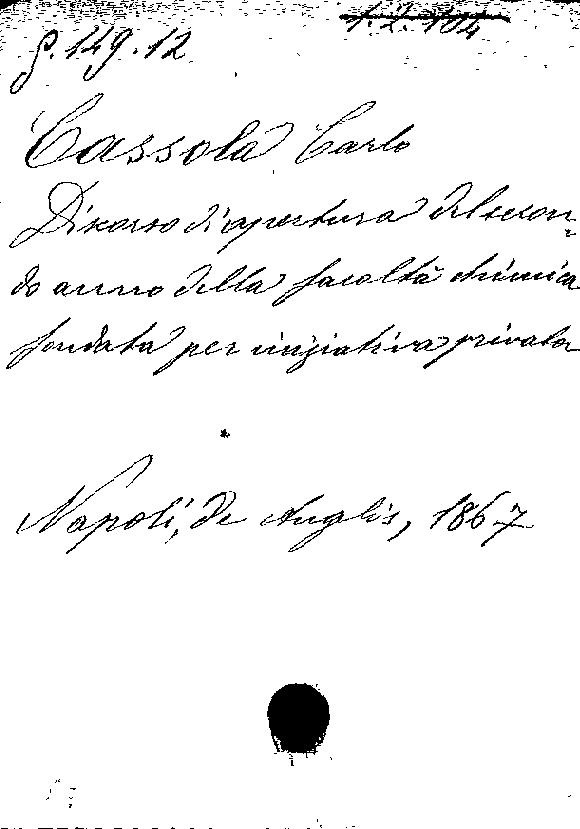 g. 149. 12
1. 2. 104
Cassola Carlo
Discorso di apertura del secon-
do anno della facoltà chimica
fondata per iniziativa privata
Napoli, de Anglis, 1867